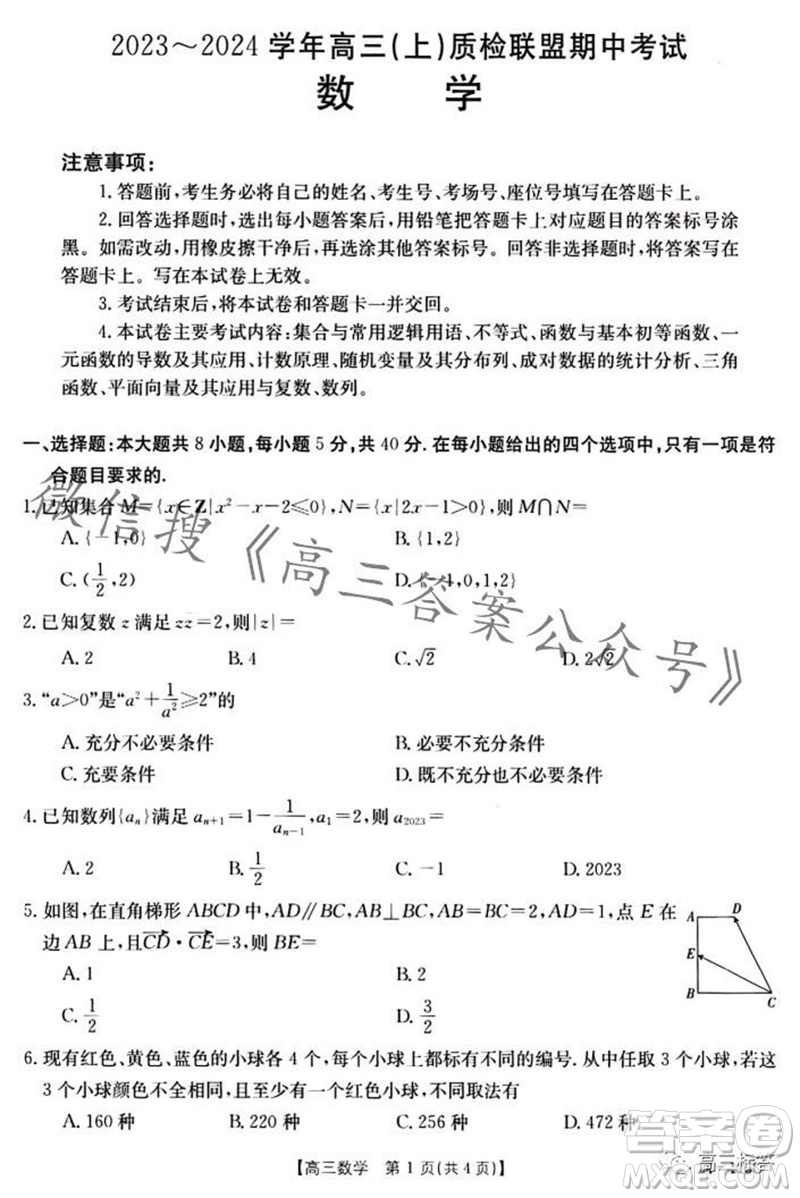 2023～2024 学年高三(上)质检联盟期中考试
数 学
注意事项：
1. 答题前,考生务必将自己的姓名、考生号、考场号、座位号填写在答题卡上。
2. 回答选择题时,选出每小题答案后,用铅笔把答题卡上对应题目的答案标号涂
黑。如需改动,用橡皮擦干净后,再选涂其他答案标号。回答非选择题时,将答案写在
答题卡上。写在本试卷上无效。
3. 考试结束后,将本试卷和答题卡一并交回。
4. 本试卷主要考试内容:集合与常用逻辑用语、不等式、函数与基本初等函数、一
元函数的导数及其应用、计数原理、随机变量及其分布列、成对数据的统计分析、三角
函数、平面向量及其应用与复数、数列。
一、选择题:本大题共 8 小题,每小题 5 分,共 40 分. 在每小题给出的四个选项中,只有一项是符
合题目要求的.
1. 已知集合 M={x∈Z|x²-x-2≤0},N={x|2x-1>0},则 M∩N=
A. {-1,0} B. {1,2}
C. (1/2,2) D. {-1,0,1,2}
2. 已知复数 z 满足 zz̄=2,则|z|=
A. 2 B. 4 C. √2 D. 2√2
3. “a>0”是“a²+1/a²≥2”的
A. 充分不必要条件 B. 必要不充分条件
C. 充要条件 D. 既不充分也不必要条件
4. 已知数列{aₙ}满足 aₙ₊₁=1-1/aₙ₋₁,a₁=2,则 a₂₀₂₃=
A. 2 B. 1/2 C. -1 D. 2023
5. 如图,在直角梯形 ABCD 中,AD∥BC,AB⊥BC,AB=BC=2,AD=1,点 E 在
边 AB 上,且CD·CE=3,则 BE=
A D
E
B C
A. 1 B. 2
C. 1/2 D. 3/2
6. 现有红色、黄色、蓝色的小球各 4 个,每个小球上都标有不同的编号. 从中任取 3 个小球,若这
3 个小球颜色不全相同,且至少有一个红色小球,不同取法有
A. 160 种 B. 220 种 C. 256 种 D. 472 种
【高三数学 第 1 页(共 4 页)】
微信搜《高三答案公众号》
答案圈
MXQE.COM
高三标答